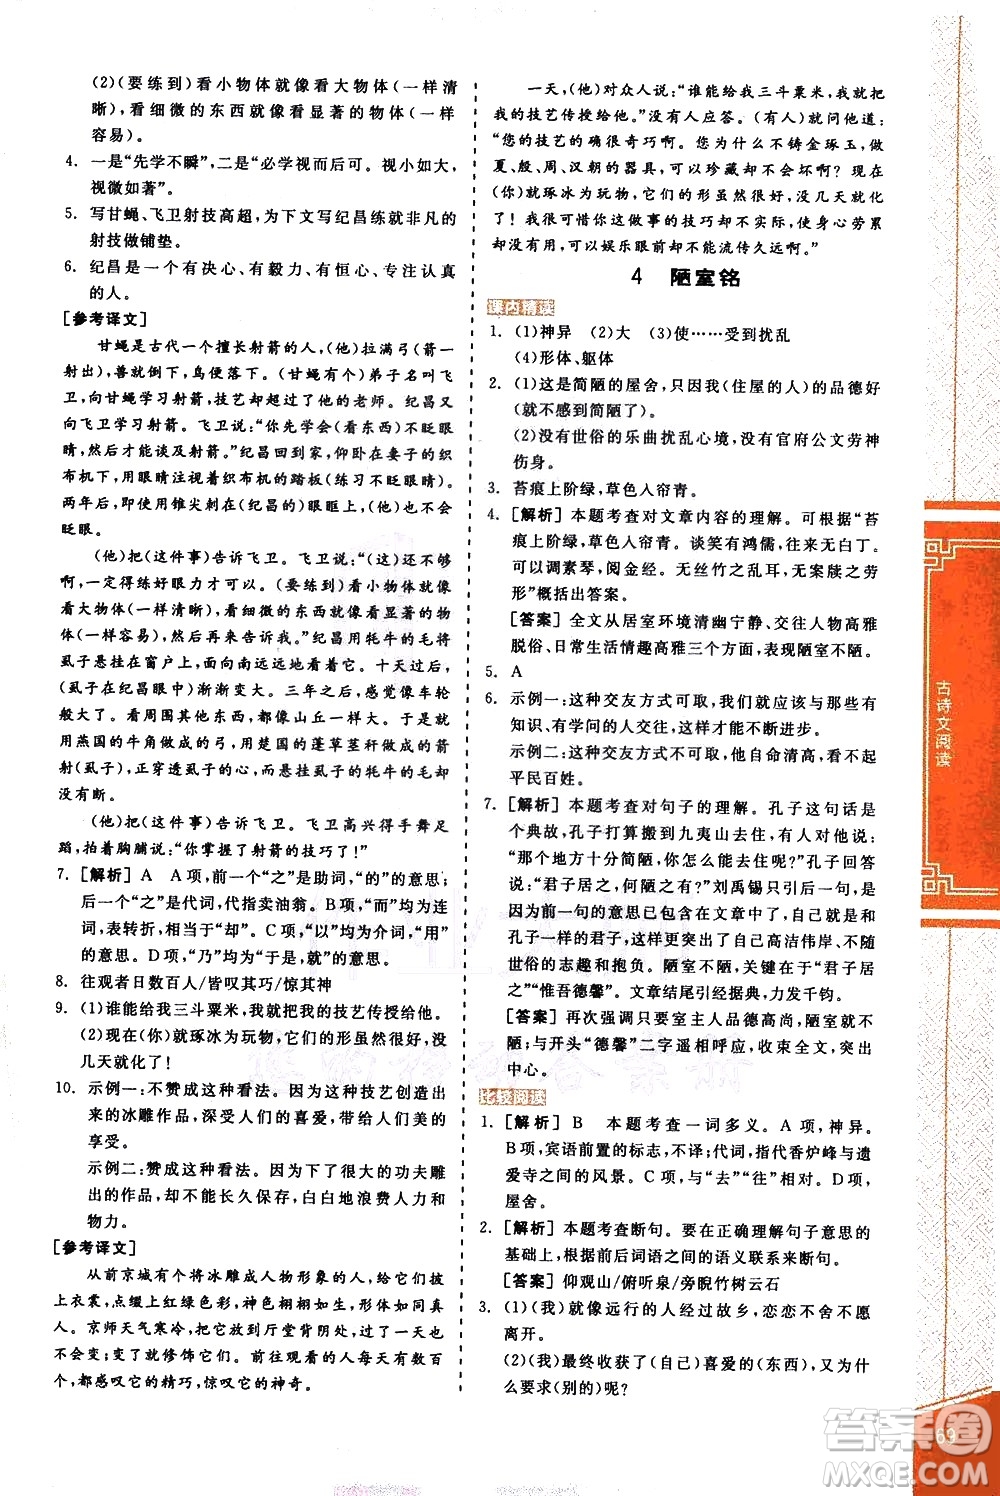 (2)(要练到)看小物体就像看大物体(一样清
晰),看细微的东西就像看显著的物体(一样
容易)。
4. 一是“先学不瞬”,二是“必学视而后可。视小如大,
视微如著”。
5. 写甘蝇、飞卫射技高超,为下文写纪昌练就非凡的
射技做铺垫。
6. 纪昌是一个有决心、有毅力、有恒心、专注认真
的人。
[参考译文]
甘蝇是古代一个擅长射箭的人,(他)拉满弓(箭一
射出),兽就倒下、鸟便落下。(甘蝇有个)弟子名叫飞
卫,向甘蝇学习射箭,技艺却超过了他的老师。纪昌又
向飞卫学习射箭。飞卫说:“你先学会(看东西)不眨眼
睛,然后才能谈得上学射箭。”纪昌回到家,仰卧在妻子的织
布机下,用眼睛注视着织布机的踏板(练习不眨眼睛)。
两年后,即使用锥尖刺在(纪昌的)眼眶上,(他)也不会
眨眼。
(他)把(这件事)告诉飞卫。飞卫说:“(这)还不够
啊,一定得练好眼力才可以。(要练到)看小物体就像
看大物体(一样清晰),看细微的东西就像看显著的物
体(一样容易),然后再来告诉我。”纪昌用牦牛的毛将
虱子悬挂在窗户上,向南远远地看着它。十天过后,
(虱子在纪昌眼中)渐渐变大。三年之后,感觉像车轮
般大了。看周围其余的东西,都像山丘一样大。于是就
用燕国的牛角做成的弓,用楚国的蓬草茎秆做成的箭
射(虱子),正穿透虱子的中心,悬挂虱子的牦牛的毛却
没有断。
(他)把(这件事)告诉了飞卫。飞卫高兴得手舞足
蹈,拍着胸脯说:“你掌握了射箭的技巧了!”
7. [解析] A A项,前一个“之”是助词,“的”的意思;
后一个“之”是代词,代指卖油翁。B项,“而”为连
词,表转折,相当于“却”。C项,“以”为介词,“用”的
意思。D项,“乃”均为“于是,就”的意思。
8. 往观者日数百人/皆叹其巧/惊其神
9. (1)谁能给我三斗粟米,我就把我的技艺传授给他。
(2)现在(你)就琢冰为玩物,它们的形虽然很好,没
几天就化了!
10. 示例一:不赞成这种看法。因为这种技艺创造出
来的冰雕作品,受到众人的喜爱,带给人们美的
享受。
示例二:赞成这种看法。因为花了很大的功夫雕
出的作品,却不能长久保存,白白地浪费人力和
物力。
[参考译文]
从前京城有个将冰雕成人物形象的人,(他)给(它们)披
上衣裳,点缀上红绿色彩,神色栩栩如生,形体各部分都如同真
人。京师天气寒冷,把它们放置在厅堂背阴处,过了一个多月也
不会变化;变了就修饰它们。前往观看的人每天有几百个,
都感叹它的精巧,惊叹它的神奇。
一天,(他)对众人说:“谁能给我三斗粟米,我就把
我的技艺传授给他。”没有人应答。(有人)就问他道:
“您的技艺的确很奇巧了!可您为什么不铸金琢玉,做
夏、殷、周、汉朝的器具,可以珍藏却不会坏啊?现在
(你)就琢冰为玩物,它们的形虽然很好,没几天就化
了!我很可惜你这做事的技巧却不实际,使身心劳累
却没有用,可以娱乐眼前却不能流传久远啊。”
4 陋室铭
课内精读
1. (1)神异 (2)大 (3)使……受到扰乱
(4)形体、躯体
2. (1)这是简陋的屋舍,只因我(住屋的人)的品德好
(就不感到简陋了)。
(2)没有世俗的乐曲扰乱心境,没有官府公文劳神
伤身。
3. 苔痕上阶绿,草色入帘青。
4. [解析] 本题考查对文章内容的理解。可以从“苔
痕上阶绿,草色入帘青。谈笑有鸿儒,往来无白丁。
可以调素琴,阅金经。无丝竹之乱耳,无案牍之劳
形”概括出答案。
[答案] 全文从居室环境清幽宁静、交往人物高雅
脱俗、日常生活情趣高雅三个方面,表现陋室不陋。
5. A
6. 示例一:这种交友方式可取,我们就应该与那些有
知识、有学问的人交往,这样才能不断进步。
示例二:这种交友方式不可取,他自命清高,看不起
平民百姓。
7. [解析] 本题考查对句子的理解。孔子这句话是
个典故,当初孔子打算搬到九夷山去住,有人劝他:
“那个地方十分简陋,您怎么能去住呢?”孔子回答
说:“君子居之,何陋之有?”刘禹锡只引后一句,是
把前一句的意思已包含在文章中了,说自己就是像
孔子一样的君子,自己也有君子高洁伟岸、不入流
世俗的志趣和抱负。陋室不陋,关键在于“君子居
之”“惟吾德馨”。文章结尾引经据典,力发千钧。
[答案] 再次强调只要室主人品德高尚,陋室就不
陋;与开头“德馨”二字遥相呼应,收束全文,点明
中心。
比较阅读
1. [解析] B 本题考查一词多义。A项,神异。
B项,宾语前置的标志,不译;代词,指代香炉峰与遗
爱寺之间的风景。C项,均与“去”“往”相对。D项,
屋舍。
2. [解析] 本题考查断句。要在正确理解句子意思的
基础上,根据前后词语的语义联系来断句。
[答案] 仰观山/俯听泉/旁睨竹树云石
3. (1)(我)就像远行的人经过故乡,恋恋不舍不愿
离开。
(2)(我)最终收获了(自己)喜爱的(东西),又为什
么要求(别的)呢?
古诗文阅读
69
答案圈
MXQE.COM